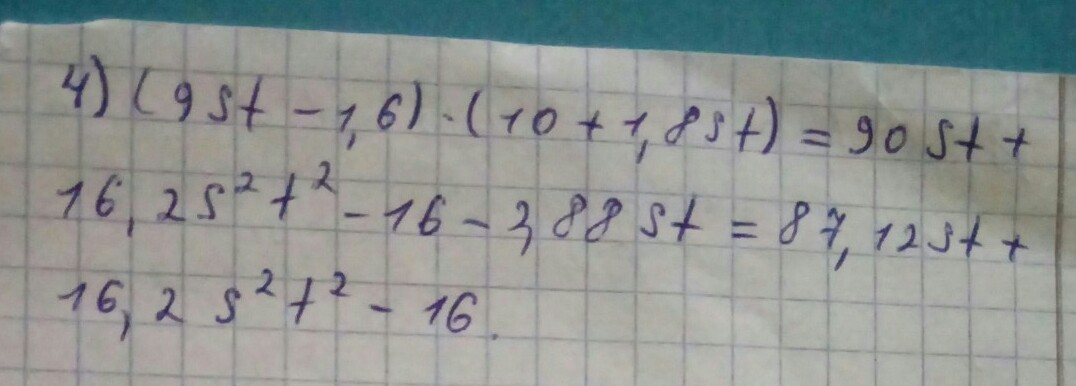 4) (9st - 1,6) · (10 + 1,8st) = 90st +
16,2s²t² - 16 - 2,88st = 87,12st +
16,2 s²t² - 16.